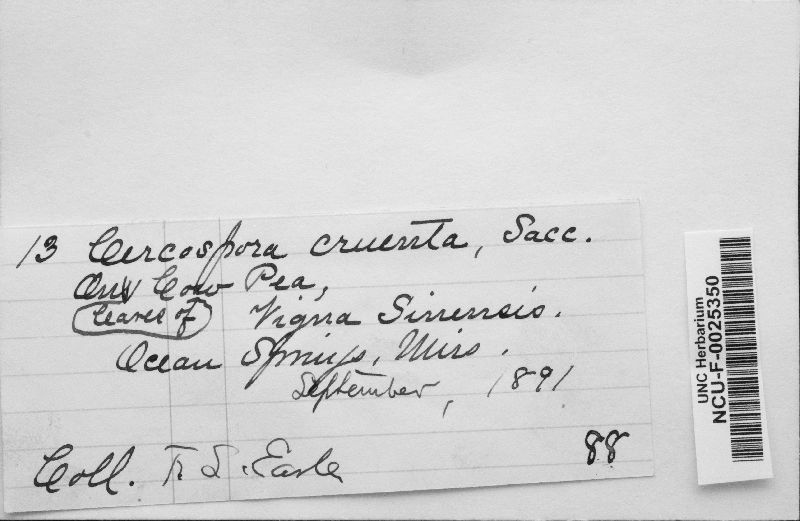 13 Cercospora cruenta, Sacc.
On Cow Pea,
leaves of Vigna Sinensis.
Ocean Springs, Miss.
September, 1891
Coll. F. S. Earle
88
UNC Herbarium
NCU-F-0025350